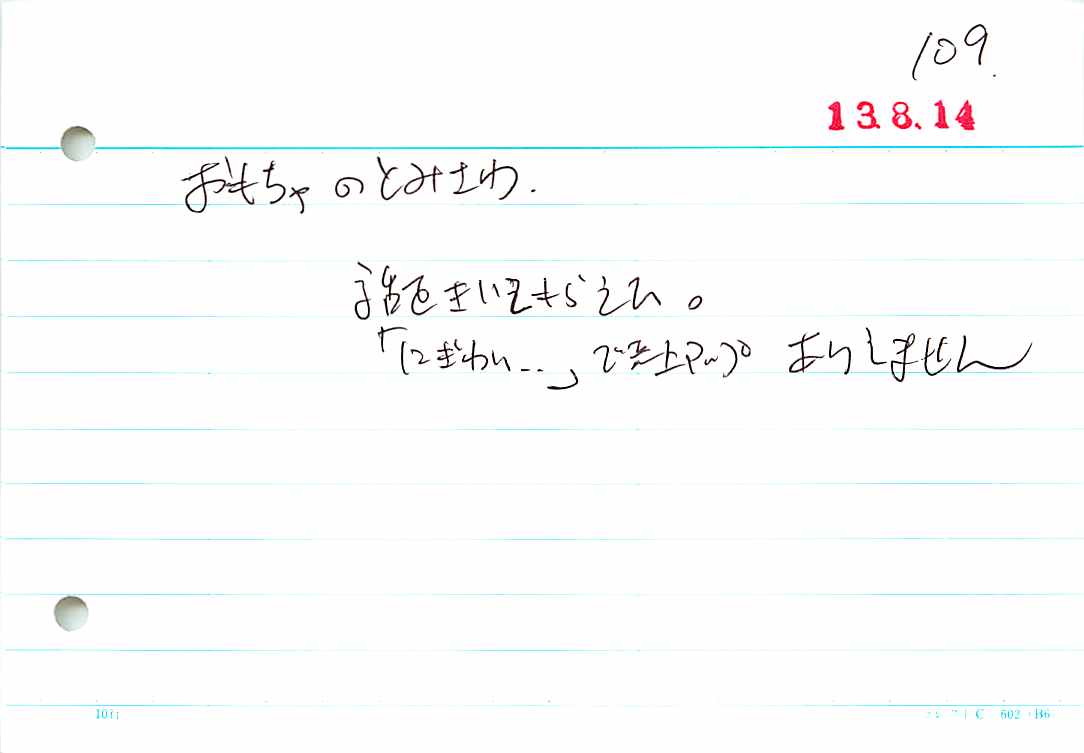 109.
13.8.14
おもちゃのとみさわ.
話をきいてもらえた。
「にぎわい...」で売上アップ ありません
10行
C 602 B6